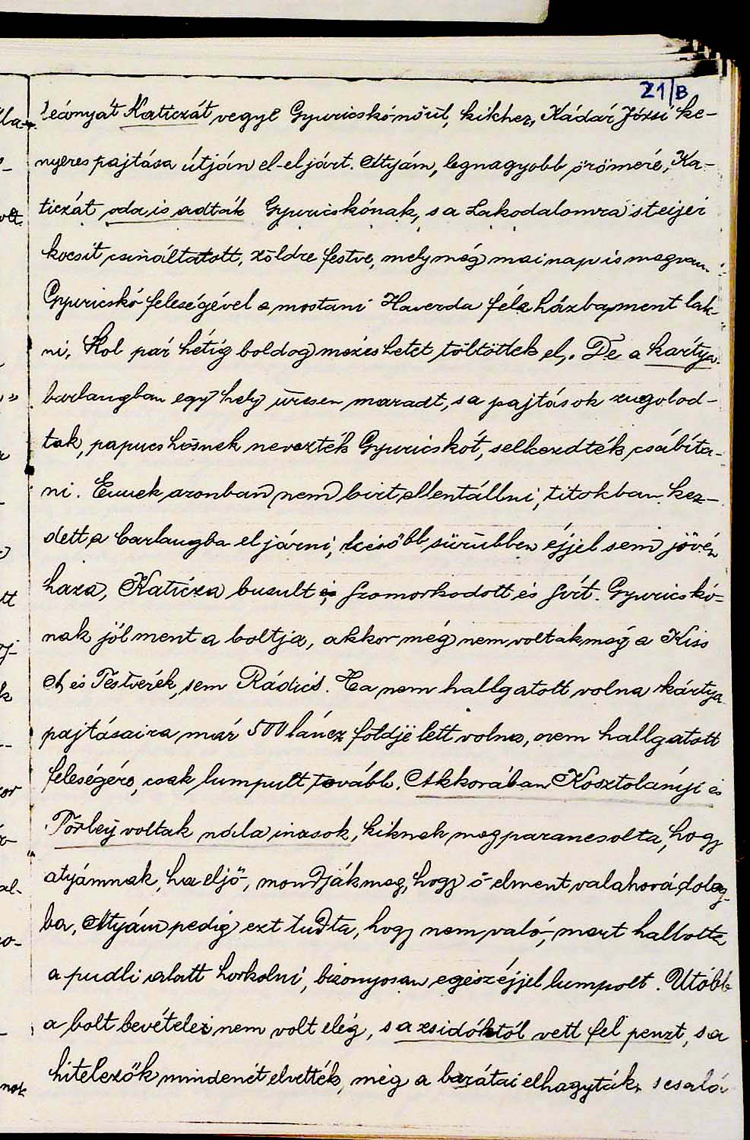 21/B
leányát Katiczát vegye Gyuricskónőül, kikhez, Kádár Józsi ke-
nyeres pajtása útján el-eljárt. Atyám, legnagyobb örömére, Ka-
ticzát oda is adták Gyuricskónak, s a Lakodalomra steijer
kocsit csináltatott, zöldre festve, mely még mai nap is megvan.
Gyuricskó feleségével a mostani Haverda féle házba ment lak-
ni, Hol pár hétig boldog mézeshetet töltöttek el. De a kártya
barlangban egy hely üresen maradt, s a pajtások zugolod-
tak, papucs hősnek nevezték Gyuricskót, s elkezdték csábíta-
ni. Ennek azonban nem birt ellentállni, titokban kez-
dett a barlangba eljárni, később sürübben éjjel sem jövén
haza, Katicza busult és szomorkodott és sírt. Gyuricskó-
nak jól ment a boltja, akkor még nem voltak még a Kiss
A és Testverék, sem Rádics. Ha nem hallgatott volna kártya
pajtásaira már 500 láncz földje lett volna, nem hallgatott
feleségére, csak lumpult tovább. Akkorában Kosztolányi és
Törley voltak nála inasok, kiknek megparancsolta, hogy
atyámnak, ha eljő, mondják meg, hogy ő elment valahová dolog-
ba, Atyám pedig ezt tudta, hogy nem való, mert hallotta
a pudli alatt horkolni, bizonyosan egész éjjel lumpolt. Utóbb
a bolt bevételei nem volt elég, s a zsidóktól vett fel penzt, s a
hitelezők mindenét elvették, még a barátai elhagyták, s csalá